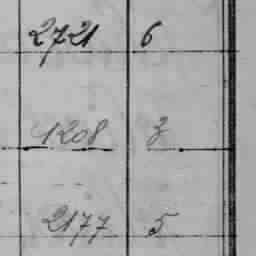 2721 6
1208 3
2177 5